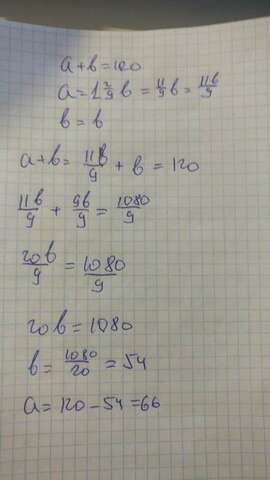 a + b = 120
a = 1 2/9 b = 11/9 b = 11b/9
b = b
a + b = 11b/9 + b = 120
11b/9 + 9b/9 = 1080/9
20b/9 = 1080/9
20b = 1080
b = 1080/20 = 54
a = 120 - 54 = 66